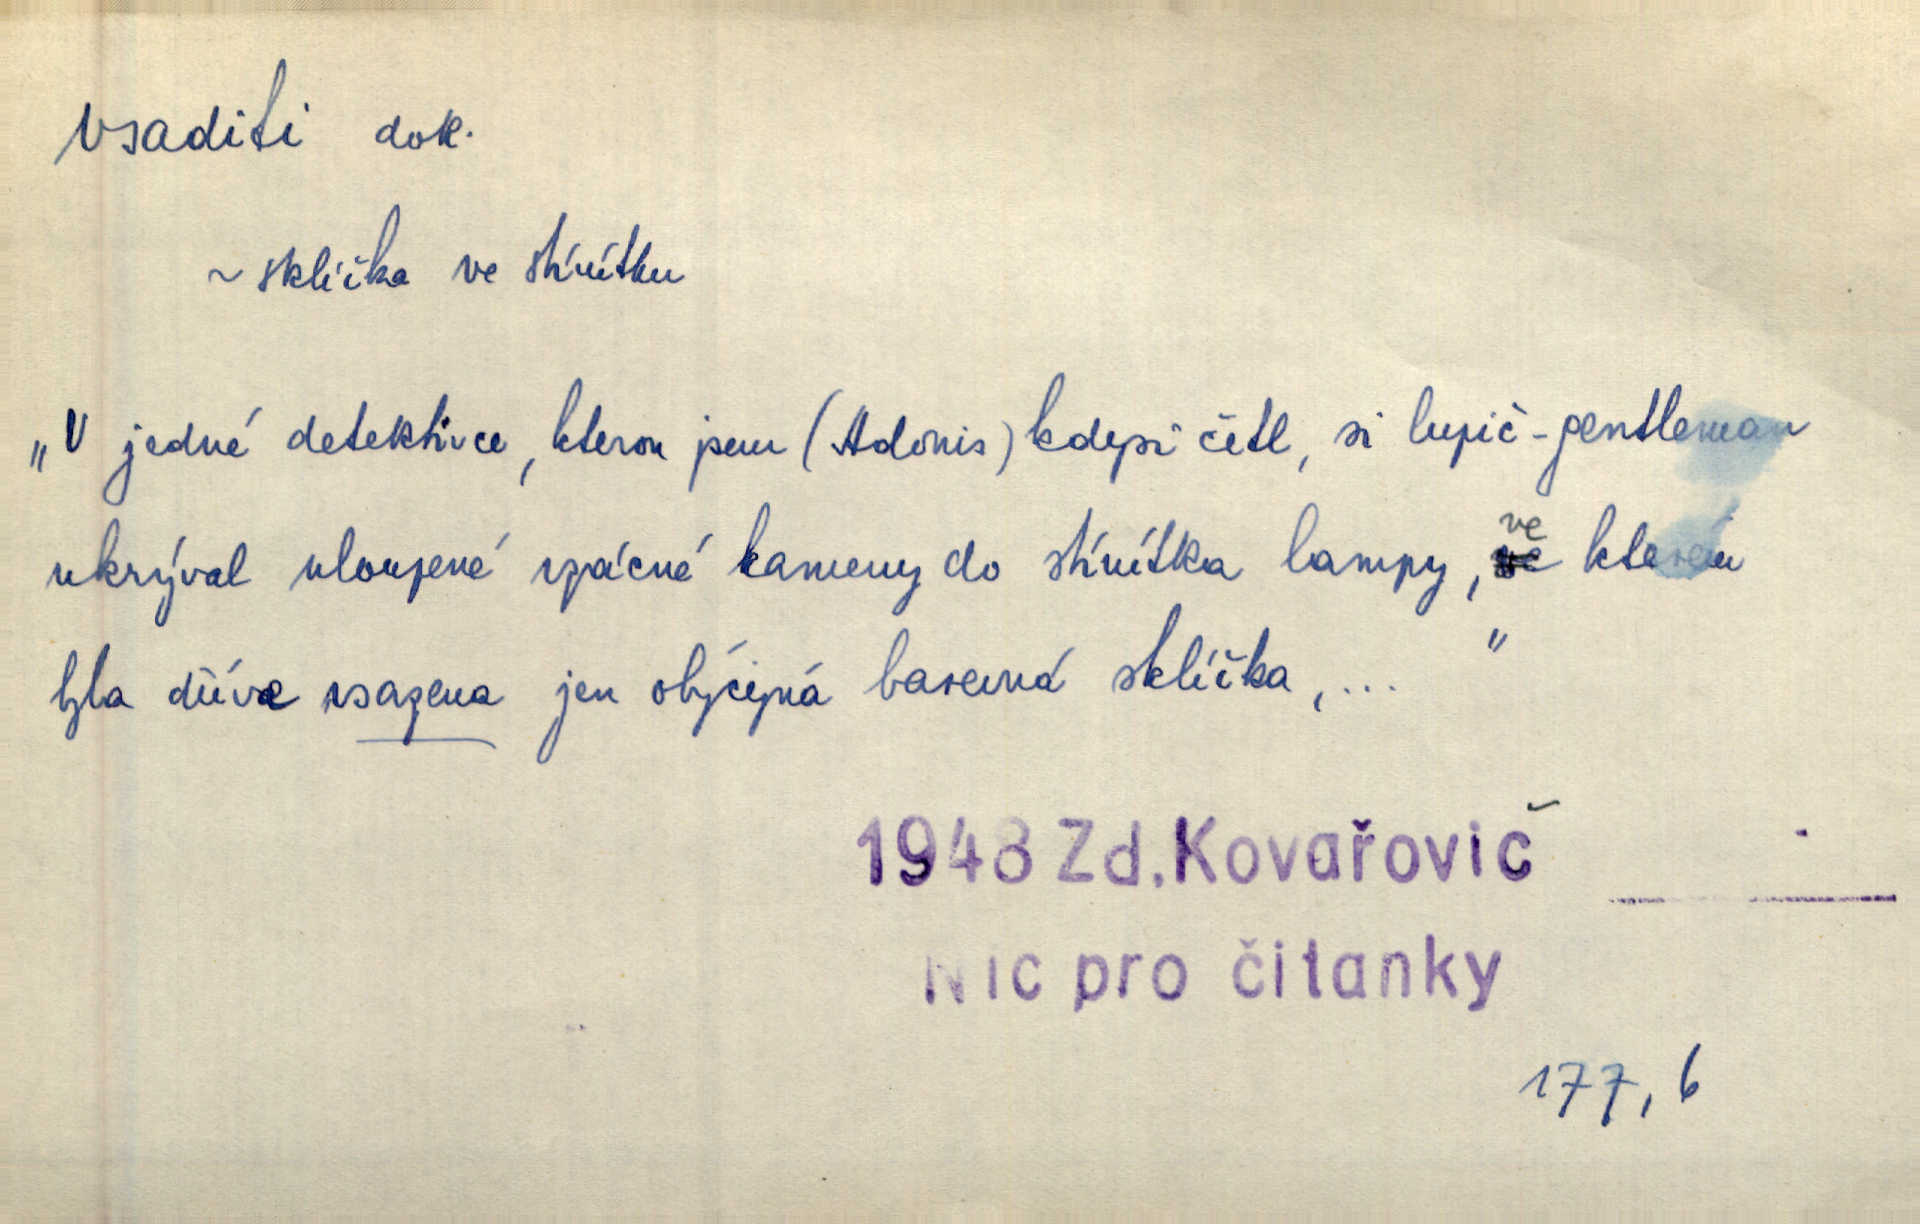 vsaditi dok.
~ sklíčka ve stínítku
„V jedné detektivce, kterou jsem (Adonis) kdysi četl, si lupič-gentleman
ukrýval uloupené vzácné kameny do stínítka lampy, ve kterém
byla dříve vsazena jen obyčejná barevná sklíčka, ... "
1948 Zd. Kovařovič
Nic pro čitanky
177, 6